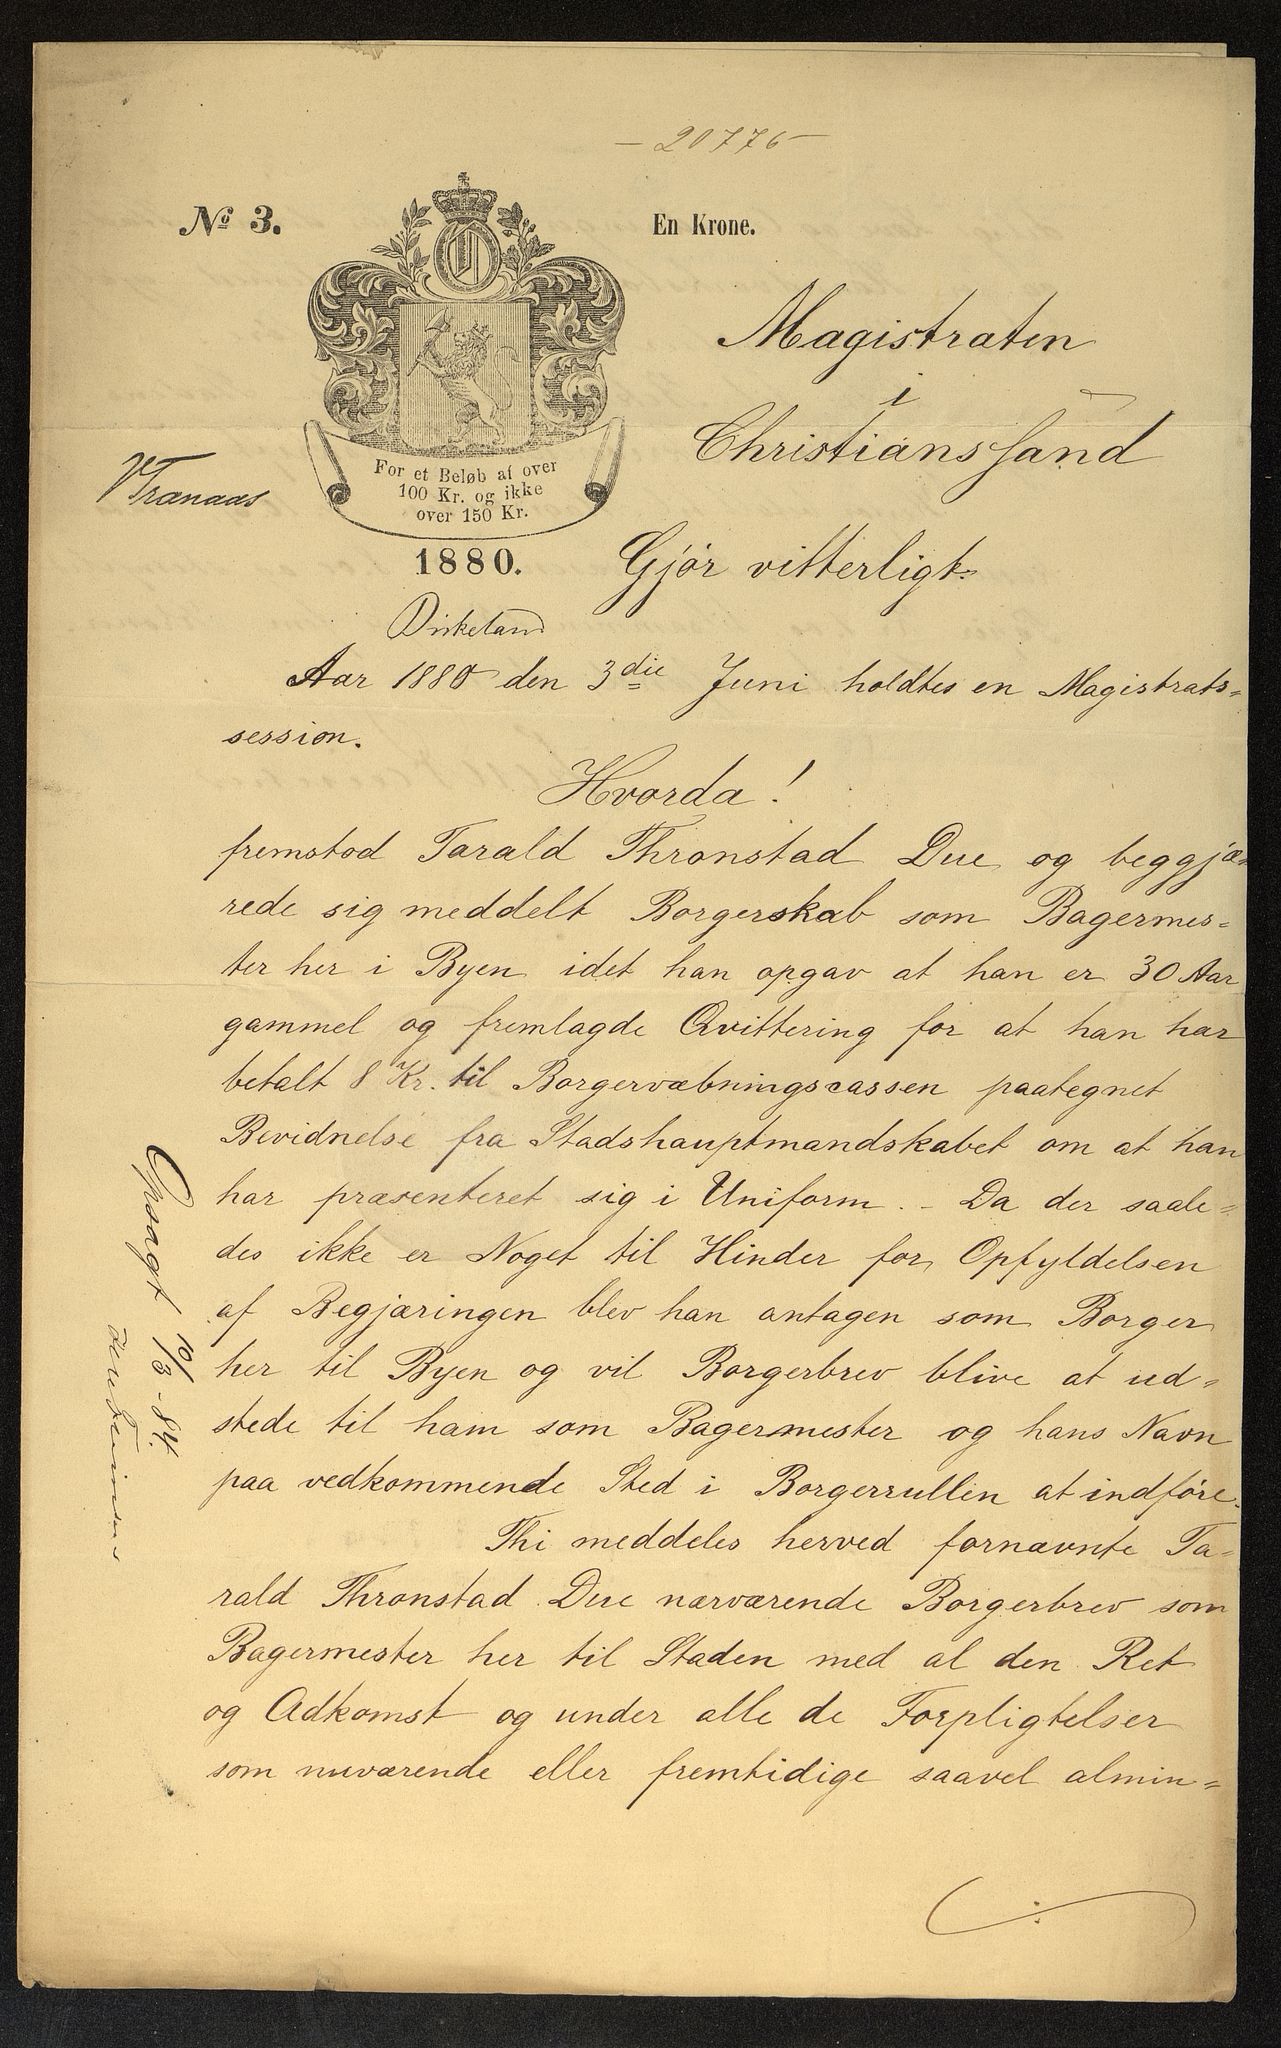 - 20776 -
No 3.
En Krone.
O
Magistraten
i
Christianssand
For et Beløb af over
100 Kr. og ikke
over 150 Kr.
VTranaas
1880.
Gjør vitterligt:
Birkeland
Aar 1880 den 3die Juni holdtes en Magistrats=
session.
Hvorda!
fremstod Tarald Thronstad Due og beggjæ=
rede sig meddelt Borgerskab som Bagermes=
ter her i Byen idet han opgav at han er 30 Aar
gammel og fremlagde Qvittering for at han har
betalt 8 Kr. til Borgervæbningscassen paategnet
Bevidnelse fra Stadshauptmandskabet om at han
har præsenteret sig i Uniform. - Da der saale=
des ikke er Noget til Hinder for Opfyldelsen
af Begjæringen blev han antagen som Borger
her til Byen og vil Borgerbrev blive at ud=
stede til ham som Bagermester og hans Navn
paa vedkommende Sted i Borgerrullen at indføre.
Thi meddeles herved fornævnte Ta=
rald Thronstad Due nærværende Borgerbrev som
Bagermester her til Staden med al den Ret
og Adkomst og under alle de Forpligtelser
som nuværende eller fremtidige saavel almin=
Opsagt 10/3-84.